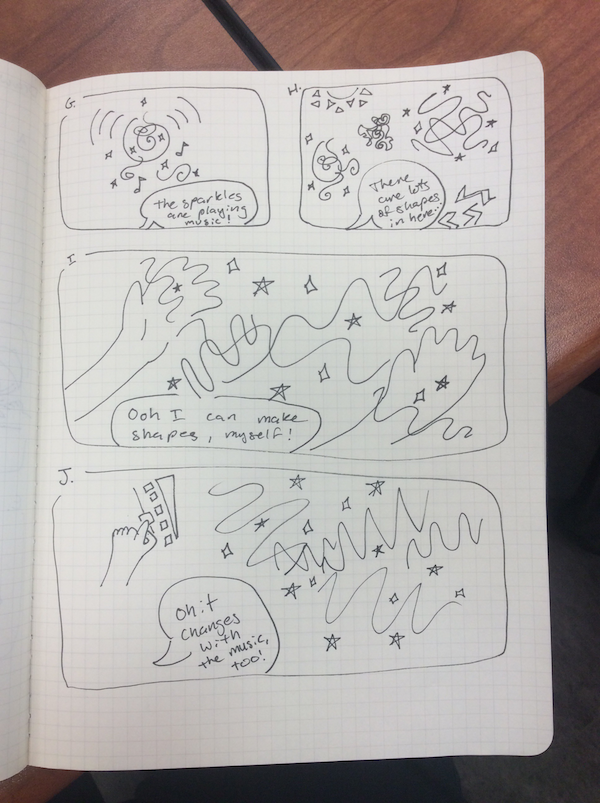 G.
the sparkles
are playing
music!
H.
There
are lots
of shapes
in here...
I
Ooh I can make
shapes, myself!
J.
Oh it
changes
with
the music,
too!